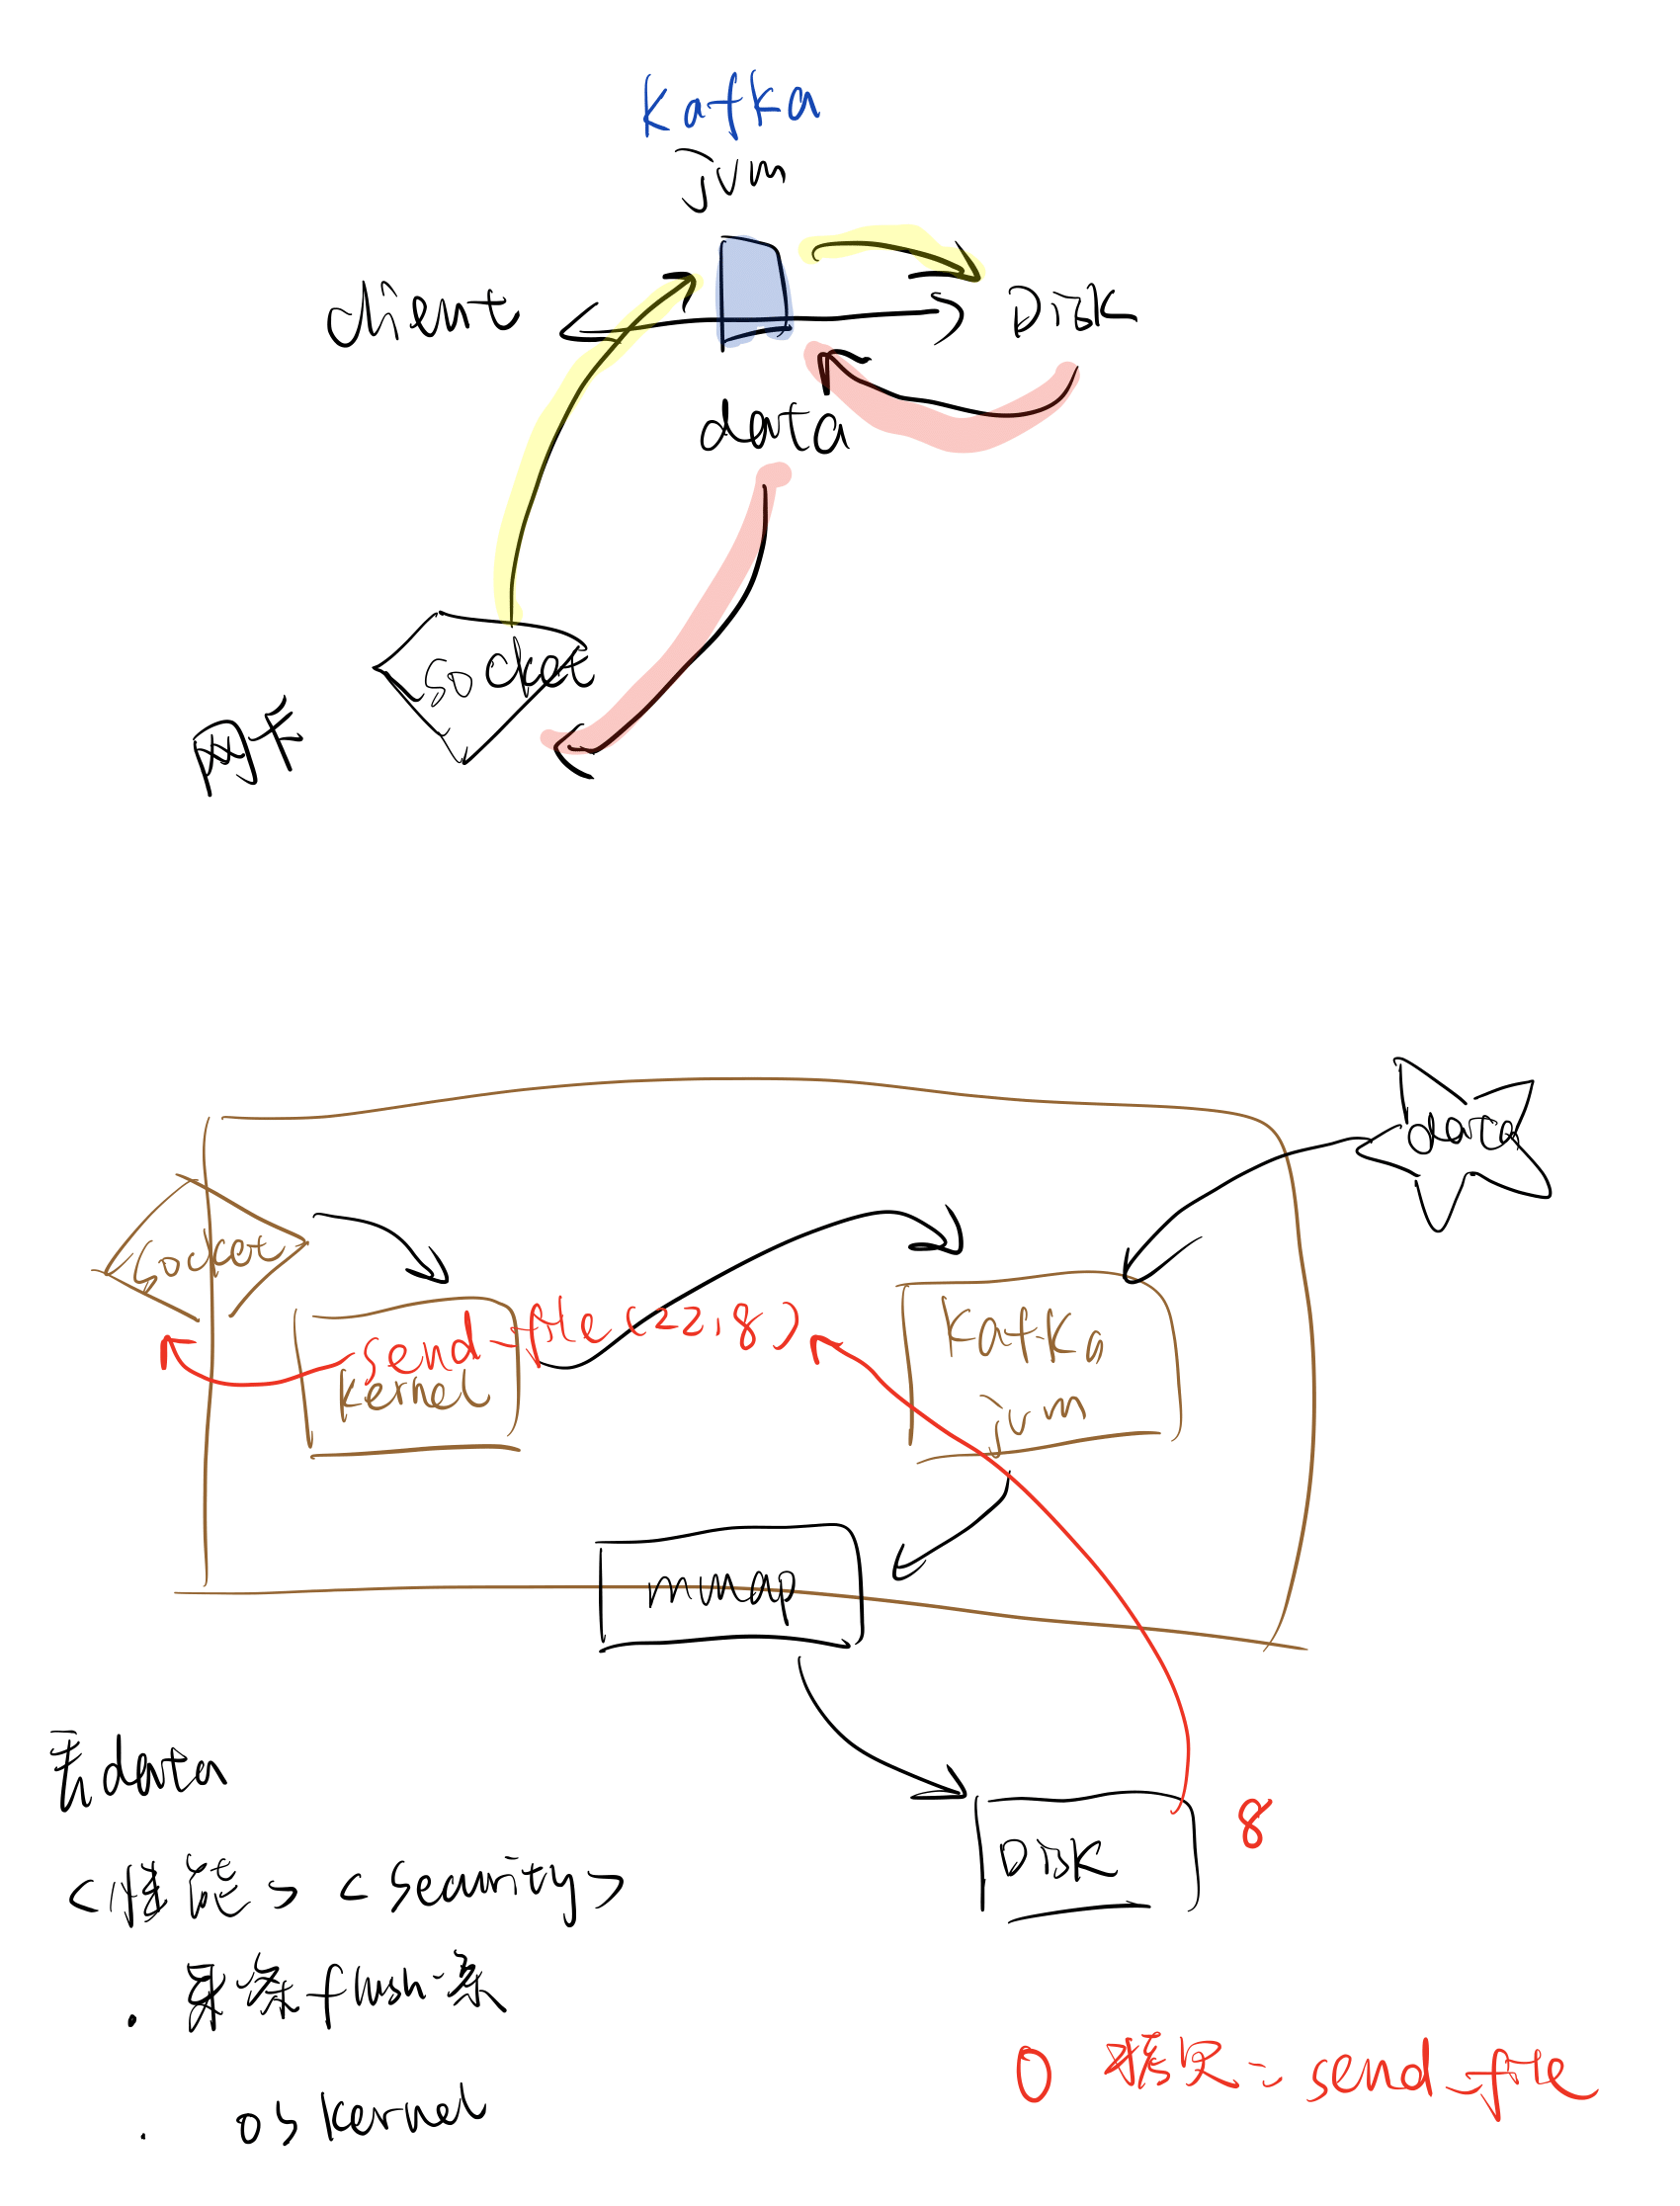 Kafka
jvm
client
Disk
data
socket
网卡
data
socket
send_file(22,8)
kernel
Kafka
jvm
mmap
丢data
Disk
8
<性能> <security>
. 来一条flush一条
. os kernel
0 拷贝 = send_file